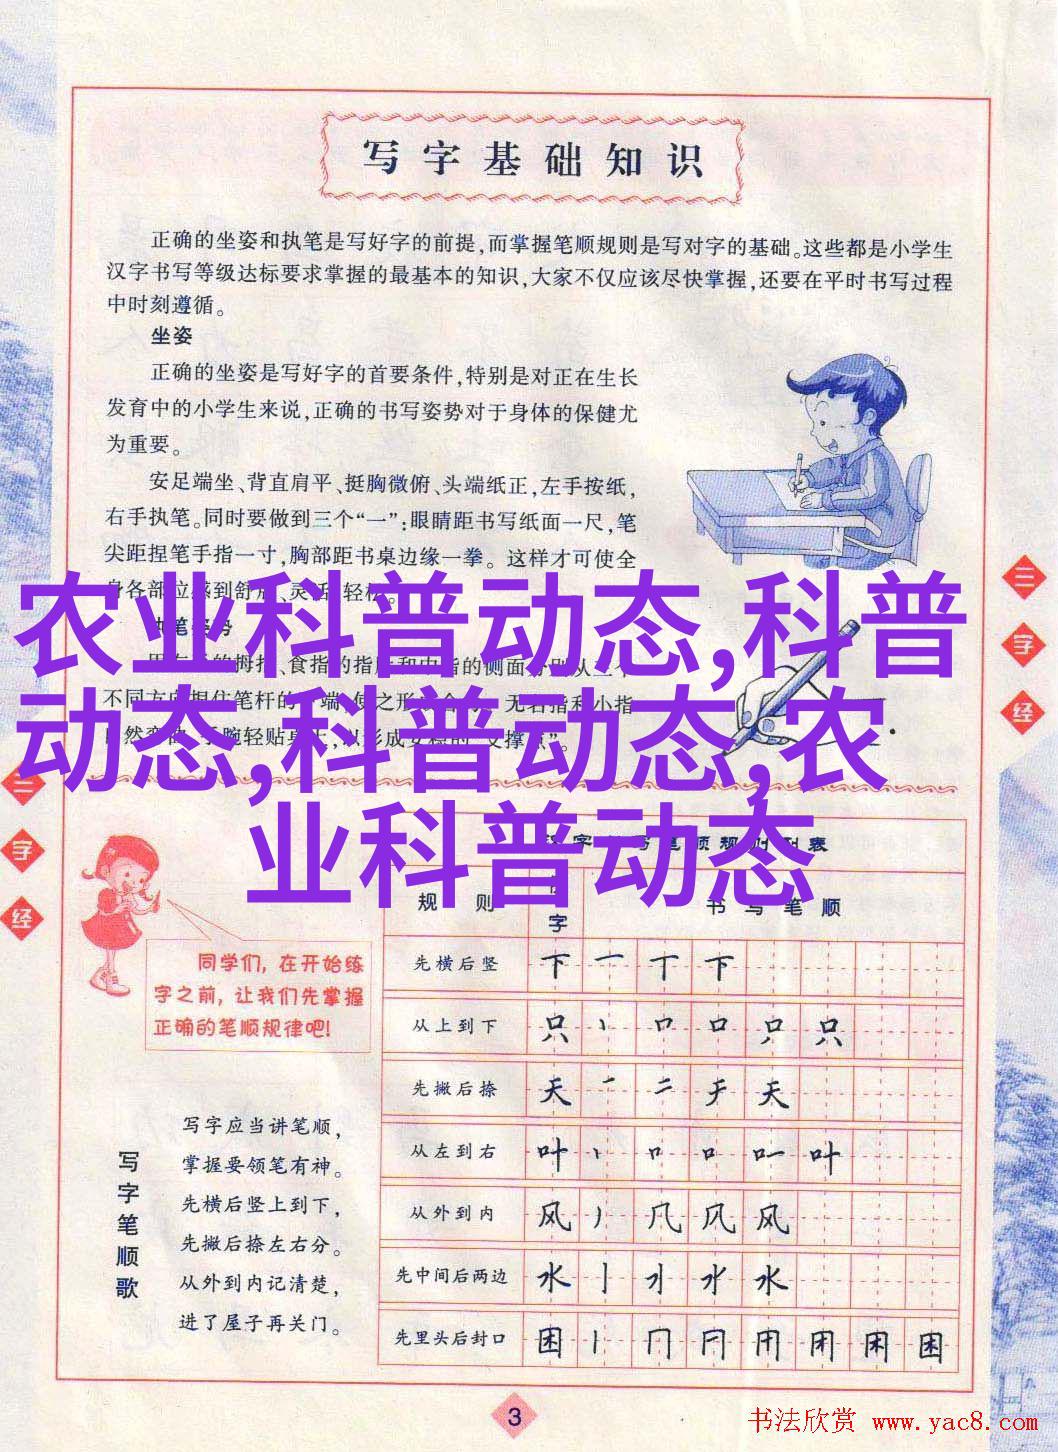 写字基础知识
正确的坐姿和执笔是写好字的前提,而掌握笔顺规则是写对字的基础。这些都是小学生
汉字书写等级达标要求掌握的最基本的知识,大家不仅应该尽快掌握,还要在平时书写过程
中时刻遵循。
坐姿
正确的坐姿是写好字的首要条件,特别是对正在生长
发育中的小学生来说,正确的书写姿势对于身体的保健尤
为重要。
安足端坐、背直肩平、挺胸微俯、头端纸正,左手按纸,
右手执笔。同时要做到三个“一”:眼睛距书写纸面一尺,笔
尖距捏笔手指一寸,胸部距书桌边缘一拳。这样才可使全
身各部位感到舒
农业科普动态,科普
动态,科普动态,农
业科普动态
三字经
三字经
规则
字
书写笔顺
同学们,在开始练
字之前,让我们先掌握
正确的笔顺规律吧!
先横后竖 下 一 丅 下
从上到下 只 丶 口 口 只 只
先撇后捺 天 一 二 チ 天
从左到右 叶 丶 口 口 叶
从外到内 风 丿 几 风 风
先中间后两边 水 亅 水
先里头后封口 困 丨 冂 困
写字笔顺歌
写字应当讲笔顺,
掌握要领笔有神。
先横后竖上到下,
先撇后捺左右分。
从外到内记清楚,
进了屋子再关门。
3
书法欣赏 www.yac8.com